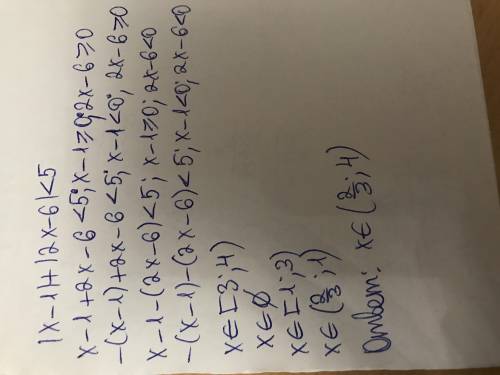 |x-1|+|2x-6|<5
x-1+2x-6<5; x-1≥0; 2x-6≥0
-(x-1)+2x-6<5; x-1<0; 2x-6≥0
x-1-(2x-6)<5; x-1≥0; 2x-6<0
-(x-1)-(2x-6)<5; x-1<0; 2x-6<0
x∈[3;4)
x∈∅
x∈[1;3)
x∈(2/3;1)
Ответ: x∈(2/3;4)